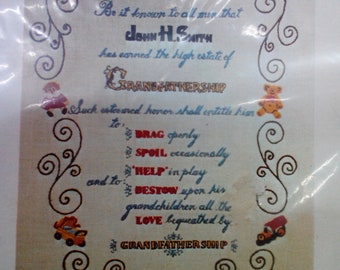 Be it known to all men that
JOHN H. SMITH
has earned the high estate of
GRANDFATHERSHIP
Such esteemed honor shall entitle him
to: BRAG openly
SPOIL occasionally
"HELP" in play
and to: BESTOW upon his
grandchildren all the
LOVE bequeathed by
GRANDFATHERSHIP